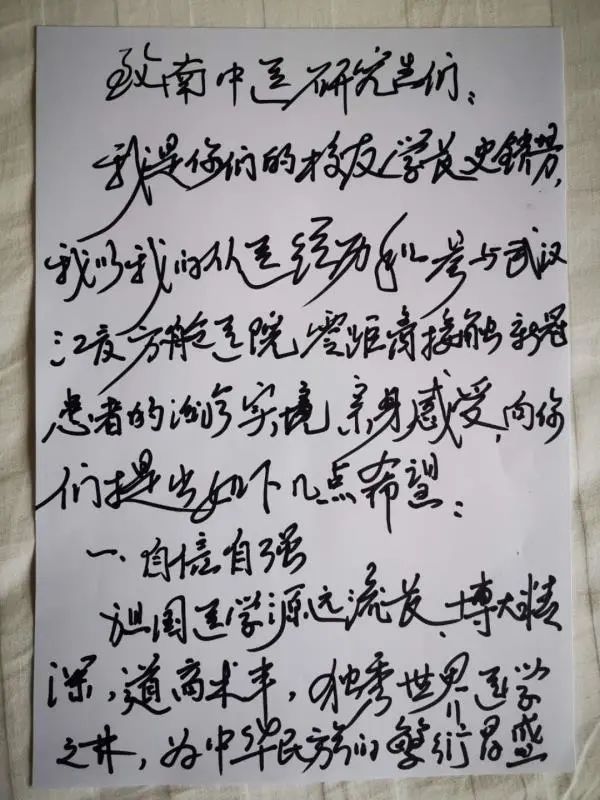 致南中医研究生们:
我是你们的校友学长史锁芳,
我以我的从医经历和参与武汉
江夏方舱医院零距离接触新冠
患者的治疗实境亲身感受,向你
们提出如下几点希望:
一、自信自强
祖国医学源远流长、博大精
深,道高术丰,独秀世界医学
之林,为中华民族的繁衍昌盛